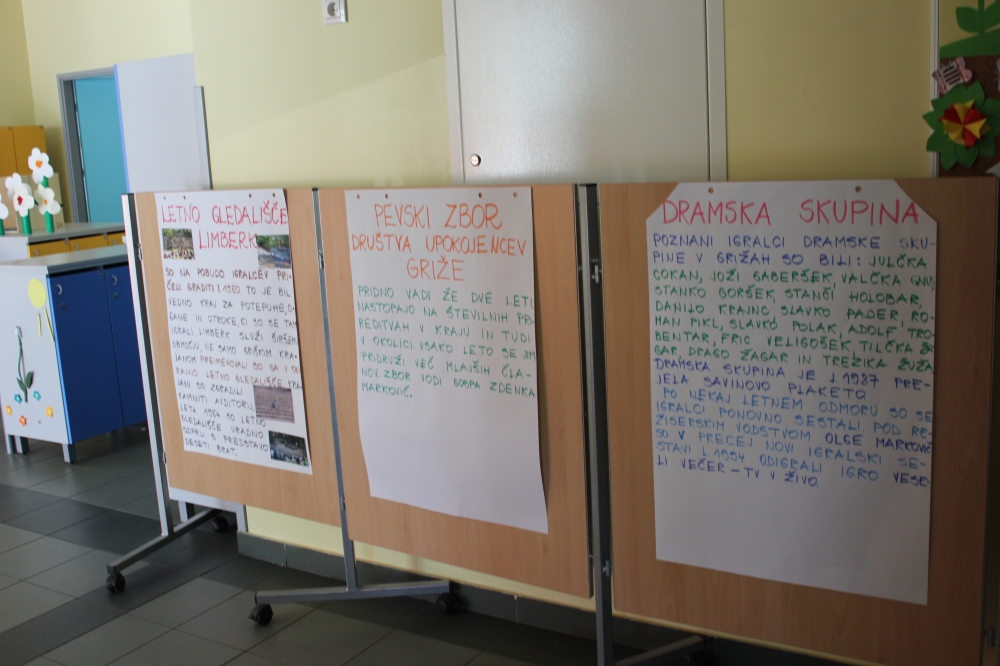 LETNO GLEDALIŠČE
LIMBERK
SO NA POBUDO IGRALCEV PRI-
ČELI GRADITI L.1980. TO JE BIL
VEDNO KRAJ ZA POTEPUHE, CI-
GANE IN OTROKE, KI SO SE TAM
IGRALI. LIMBERK SLUŽI ŠIRŠEM
OBMOČJU, NE SAMO GRIŠKIM KRA-
JANOM PREIMENOVALI SO GA V
LETNO GLEDALIŠČE
SO ZGRADILI
KAMNITI AVDITORIJ.
LETA 1984 SO LETNO
GLEDALIŠČE URADNO
ODPRLI S PREDSTAVO
DESETI BRAT.
PEVSKI ZBOR
DRUŠTVA UPOKOJENCEV
GRIŽE
PRIDNO VADI ŽE DVE LETI
NASTOPAJO NA ŠTEVILNIH PRI
REDITVAH V KRAJU IN TUDI
V OKOLICI VSAKO LETO SE JIM
PRIDRUŽI VEČ MLAJŠIH ČLA-
NOV. ZBOR VODI GOSPA ZDENKA
MARKOVIČ.
DRAMSKA SKUPINA
POZNANI IGRALCI DRAMSKE SKU-
PINE V GRIŽAH SO BILI: JULČKA
COKAN, JOŽI GABERŠEK, VALČKA
STANKO GORŠEK, STANČI HOLOBAR,
DANILO KRAJNC SLAVKO PAJER, RO-
MAN PIKL, SLAVKO POLAK, ADOLF TRO-
BENTAR, FRIC VELIGOŠEK, TILČKA ŽA-
GAR DRAGO ŽAGAR IN TREZIKA ŽUŽA
DRAMSKA SKUPINA JE L 1987 PRE-
JELA SAVINOVO PLAKETO
PO NEKAJ LETNEM ODMORU SO SE
IGRALCI PONOVNO SESTALI. POD RE-
ŽISERSKIM VODSTVOM OLGE MARKOVIČ
SO V PRECEJ NOVI IGRALSKI SE-
STAVI L.1994 ODIGRALI IGRO VESE-
LI VEČER - TV V ŽIVO.